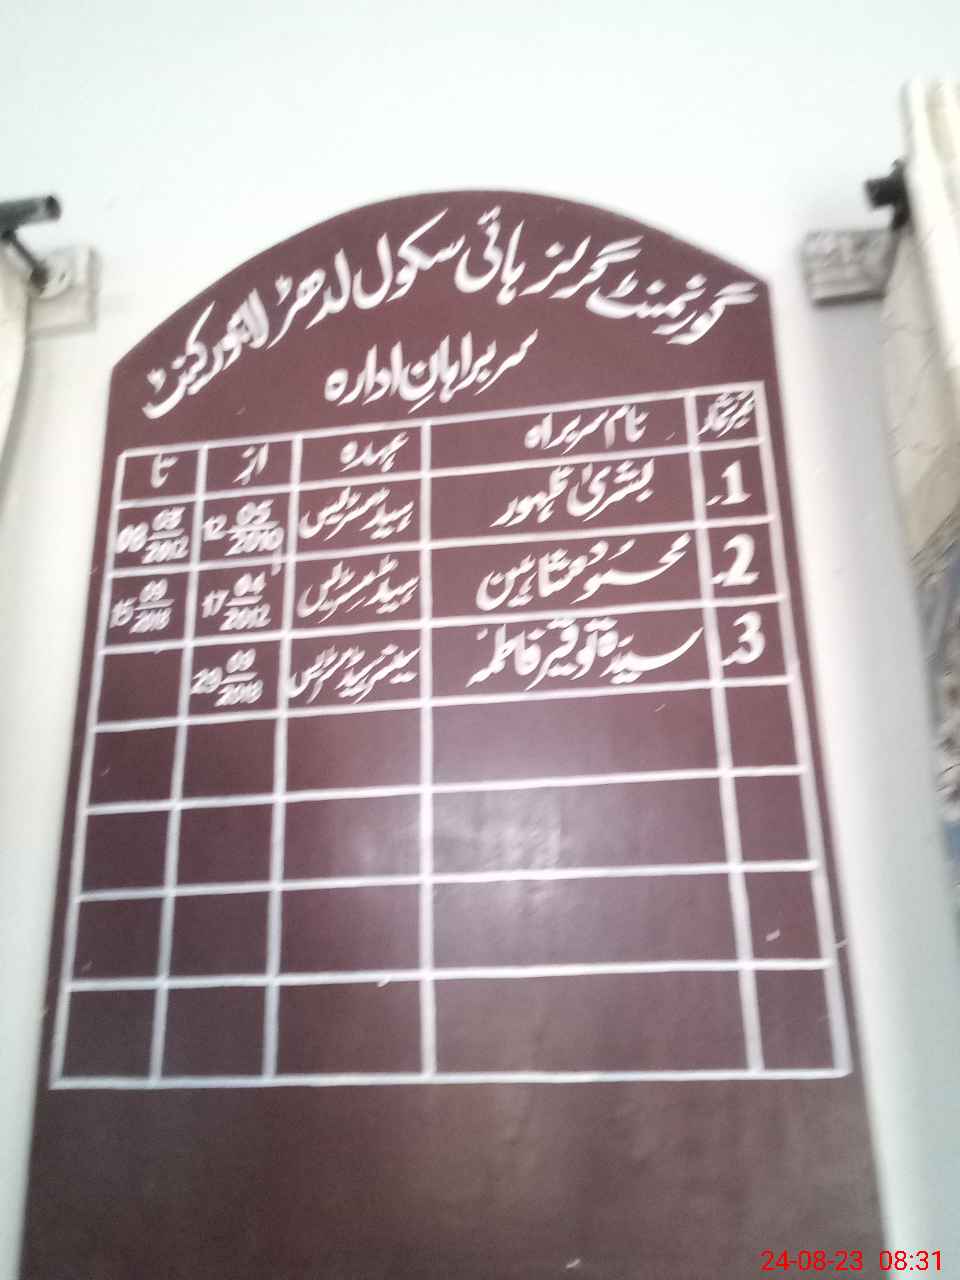 گورنمنٹ گرلز ہائی سکول لدھڑ لاہور کینٹ
سربراہانِ ادارہ
نمبر شمار نام سربراہ عہدہ از تا
1. بشریٰ ظہور ہیڈ مسٹریس 12 05/2010 08 03/2012
2. محمودہ شاہین ہیڈ مسٹریس 17 04/2012 15 09/2018
3. سیدۃ توقیر فاطمہ سینئر ہیڈ مسٹریس 29 09/2018
24-08-23 08:31